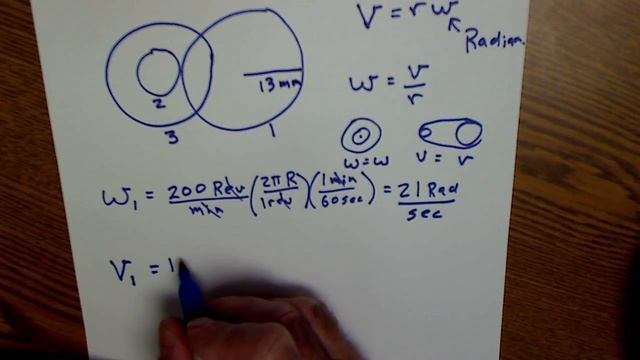 V = r ω
Radian
ω = v/r
13 mm
2
3
1
ω = ω
v = v
ω₁ = 200 Rev/min (2π R/1 rev) (1 min/60 sec) = 21 Rad/sec
V₁ = 1